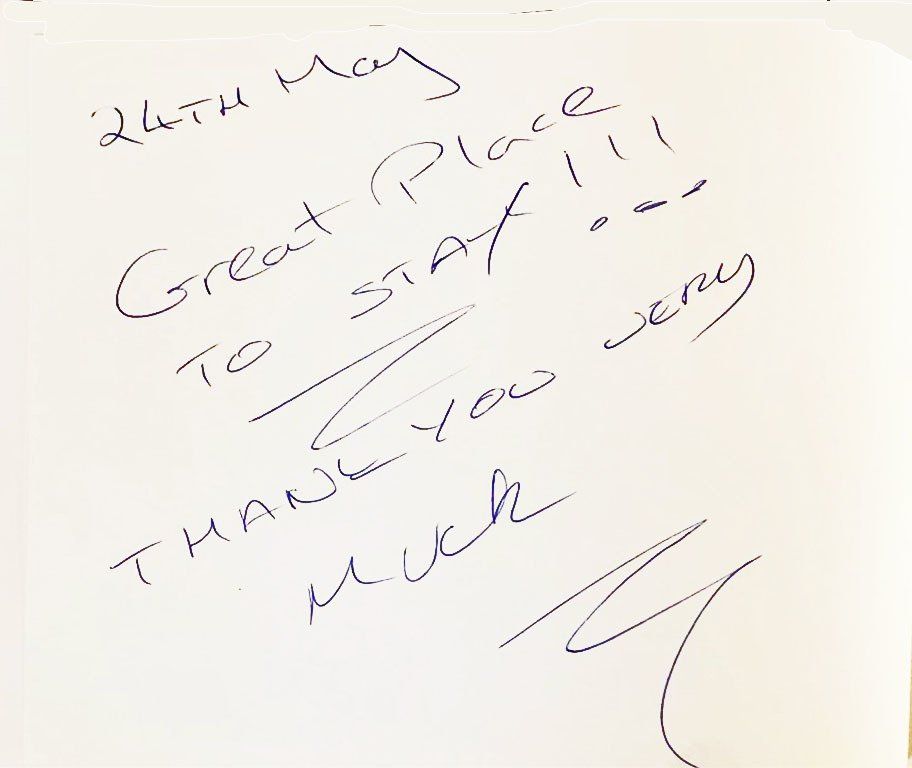 24TH May
Great Place
TO STAY!!!
THANK YOU VERY
MUCH